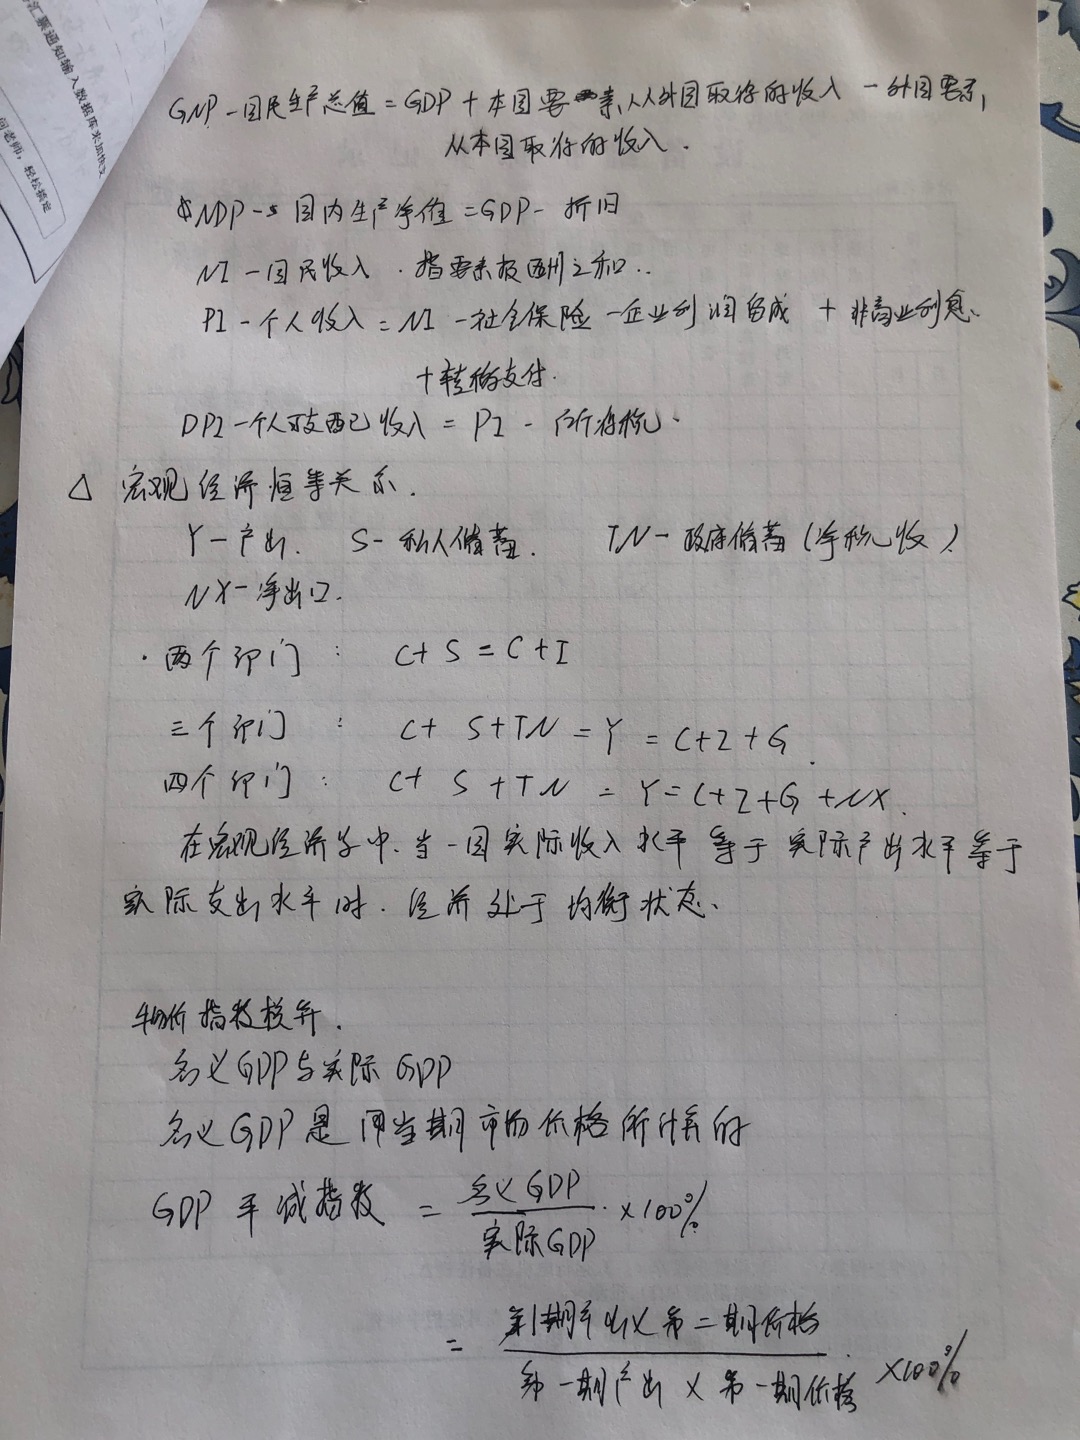 汇票通知输入数据库来加快支
何老师，轻松搞定
GNP - 国民生产总值 = GDP + 本国要素从外国取得的收入 - 外国要素
从本国取得的收入.
NDP - 国内生产净值 = GDP - 折旧
NI - 国民收入. 指要素报酬之和..
PI - 个人收入 = NI - 社会保险 - 企业利润留成 + 非商业利息
+ 转移支付.
DPI - 个人可支配收入 = PI - 所得税.
△ 宏观经济恒等关系.
Y - 产出. S - 私人储蓄. TN - 政府储蓄 (净税收)
NX - 净出口.
· 两个部门: C + S = C + I
三个部门: C + S + TN = Y = C + I + G.
四个部门: C + S + TN = Y = C + I + G + NX.
在宏观经济学中. 当一国实际收入水平等于实际产出水平等于
实际支出水平时. 经济处于均衡状态.
物价指数核算.
名义GDP与实际GDP
名义GDP是用当期市场价格所计算的
GDP平减指数 = 名义GDP / 实际GDP × 100%
= 第1期产出 × 第二期价格 / 第一期产出 × 第一期价格 × 100%